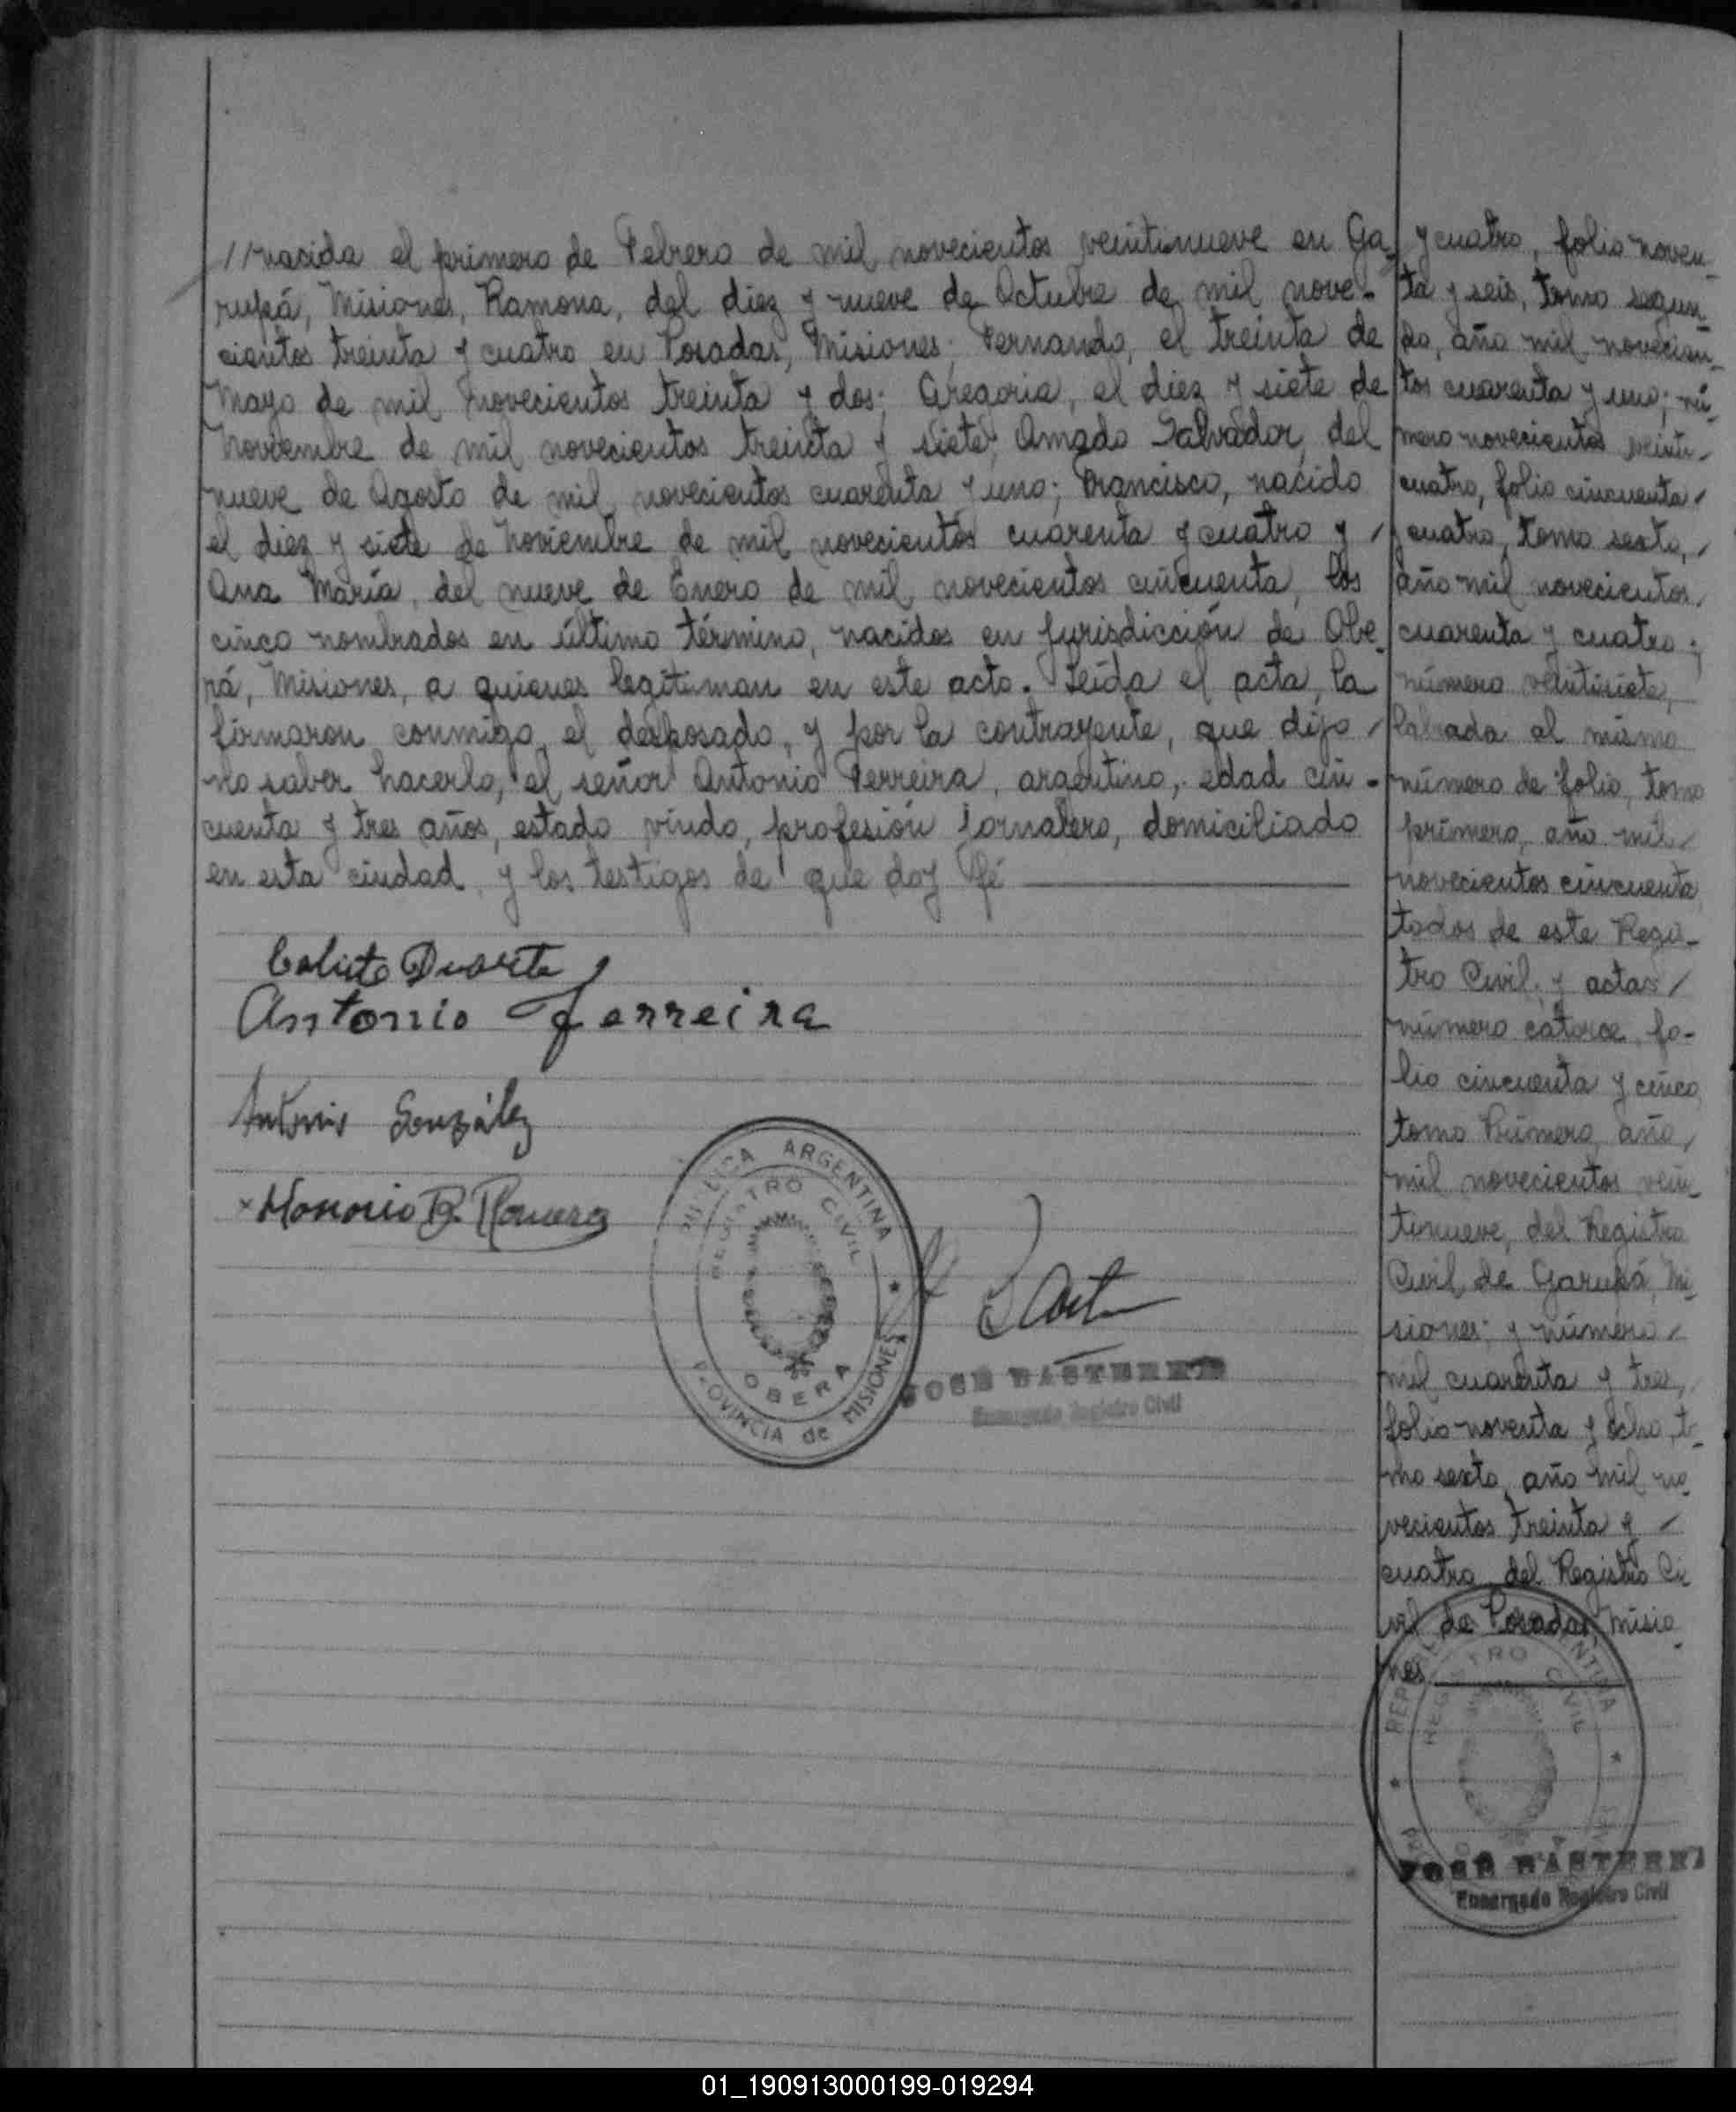 //nacida el primero de Febrero de mil novecientos veintinueve en Ga-
rupá, Misiones, Ramona, del diez y nueve de Octubre de mil nove-
cientos treinta y cuatro en Posadas, Misiones; Fernando, el treinta de
Mayo de mil novecientos treinta y dos; Gregoria, el diez y siete de
Noviembre de mil novecientos treinta y siete; Amado Salvador, del
nueve de Agosto de mil novecientos cuarenta y uno; Francisco, nacido
el diez y siete de Noviembre de mil novecientos cuarenta y cuatro y /
Ana María, del nueve de Enero de mil novecientos cincuenta, los
cinco nombrados en último término, nacidos en jurisdicción de Obe-
rá, Misiones, a quienes legitiman en este acto. Leída el acta, la
firmaron conmigo, el desposado, y por la contrayente, que dijo /
no saber hacerlo, el señor Antonio Ferreira, argentino, edad cin-
cuenta y tres años, estado viudo, profesión jornalero, domiciliado
en esta ciudad, y los testigos de que doy fé
Calisto Duarte
Antonio Ferreira
Antonio González
Honorio B. Romero
REPUBLICA ARGENTINA
REGISTRO CIVIL
OBERA
PROVINCIA de MISIONES
JOSE BASTERRE
Encargado Registro Civil
y cuatro, folio noven-
ta y seis, tomo segun-
do, año mil novecien-
tos cuarenta y uno; nú-
mero novecientos veinti-
cuatro, folio cincuenta /
cuatro, tomo sexto, /
año mil novecientos
cuarenta y cuatro;
número veintisiete,
labrada al mismo
número de folio, tomo
primero, año mil
novecientos cincuenta
todos de este Regis-
tro Civil; y actas /
número catorce, fo-
lio cincuenta y cinco,
tomo Primero, año,
mil novecientos vein-
tinueve, del Registro
Civil de Garupá, Mi-
siones; y número /
mil cuarenta y tres,
folio noventa y ocho, to-
mo sexto, año mil no-
vecientos treinta y /
cuatro, del Registro Ci-
vil de Posadas, Misio-
nes
REPUBLICA ARGENTINA
REGISTRO CIVIL
JOSE BASTERRE
Encargado Registro Civil
01_190913000199-019294